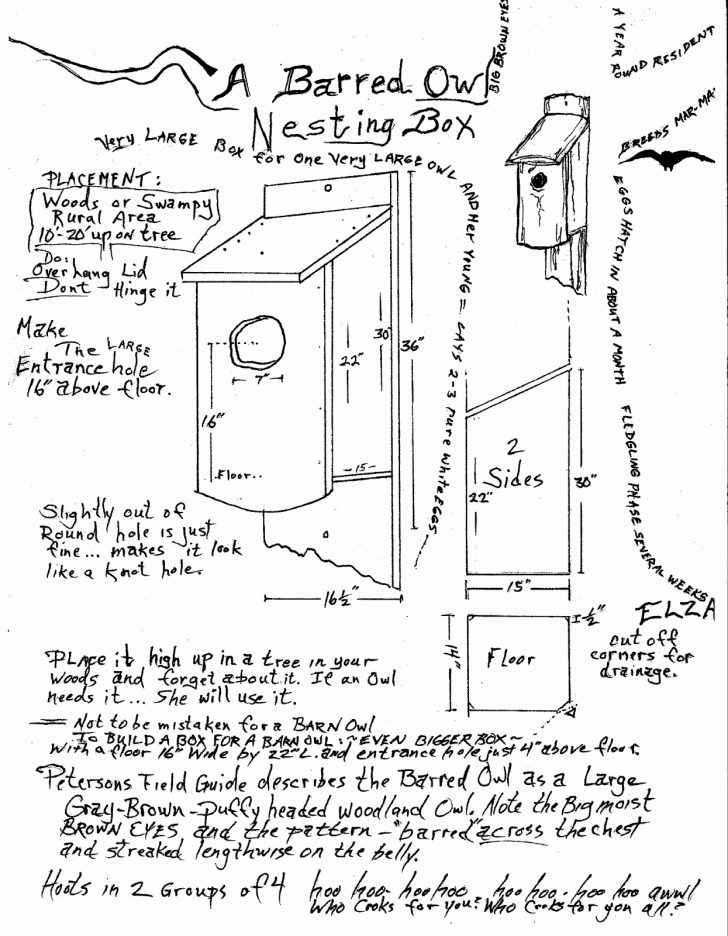 A Barred Owl
Nesting Box
Very LARGE Box for One Very LARGE OWL AND Her YOUNG = LAYS 2-3 Pure White EGGS
BIG BROWN EYES
A YEAR ROUND RESIDENT
BREEDS MAR-MA
EGGS HATCH IN ABOUT A MONTH FLEDGLING PHASE SEVERAL WEEKS
PLACEMENT:
Woods or Swampy
Rural Area
10'-20' up on tree
Do:
Overhang Lid
Dont Hinge it
Make
The LARGE
Entrance hole
16" above floor.
7"
16"
Floor..
22"
30"
36"
15
16½"
Slightly out of
Round hole is just
fine... makes it look
like a knot hole.
2
Sides
22"
30"
15"
ELZA
14"
Floor
½"
cut off
corners for
drainage.
Place it high up in a tree in your
woods and forget about it. If an Owl
needs it... She will use it.
Not to be mistaken for a BARN Owl
TO BUILD A BOX FOR A BARN OWL: EVEN BIGGER BOX~
With a floor 16" Wide by 22" L. and entrance hole just 4" above floor.
Petersons Field Guide describes the Barred Owl as a Large
Gray-Brown-Puffy headed woodland Owl. Note the Big moist
BROWN EYES and the pattern - "barred" across the chest
and streaked lengthwise on the belly.
Hoots in 2 Groups of 4 hoo hoo- hoo hoo hoo hoo - hoo hoo awwl
Who Cooks for you? Who Cooks for you all?